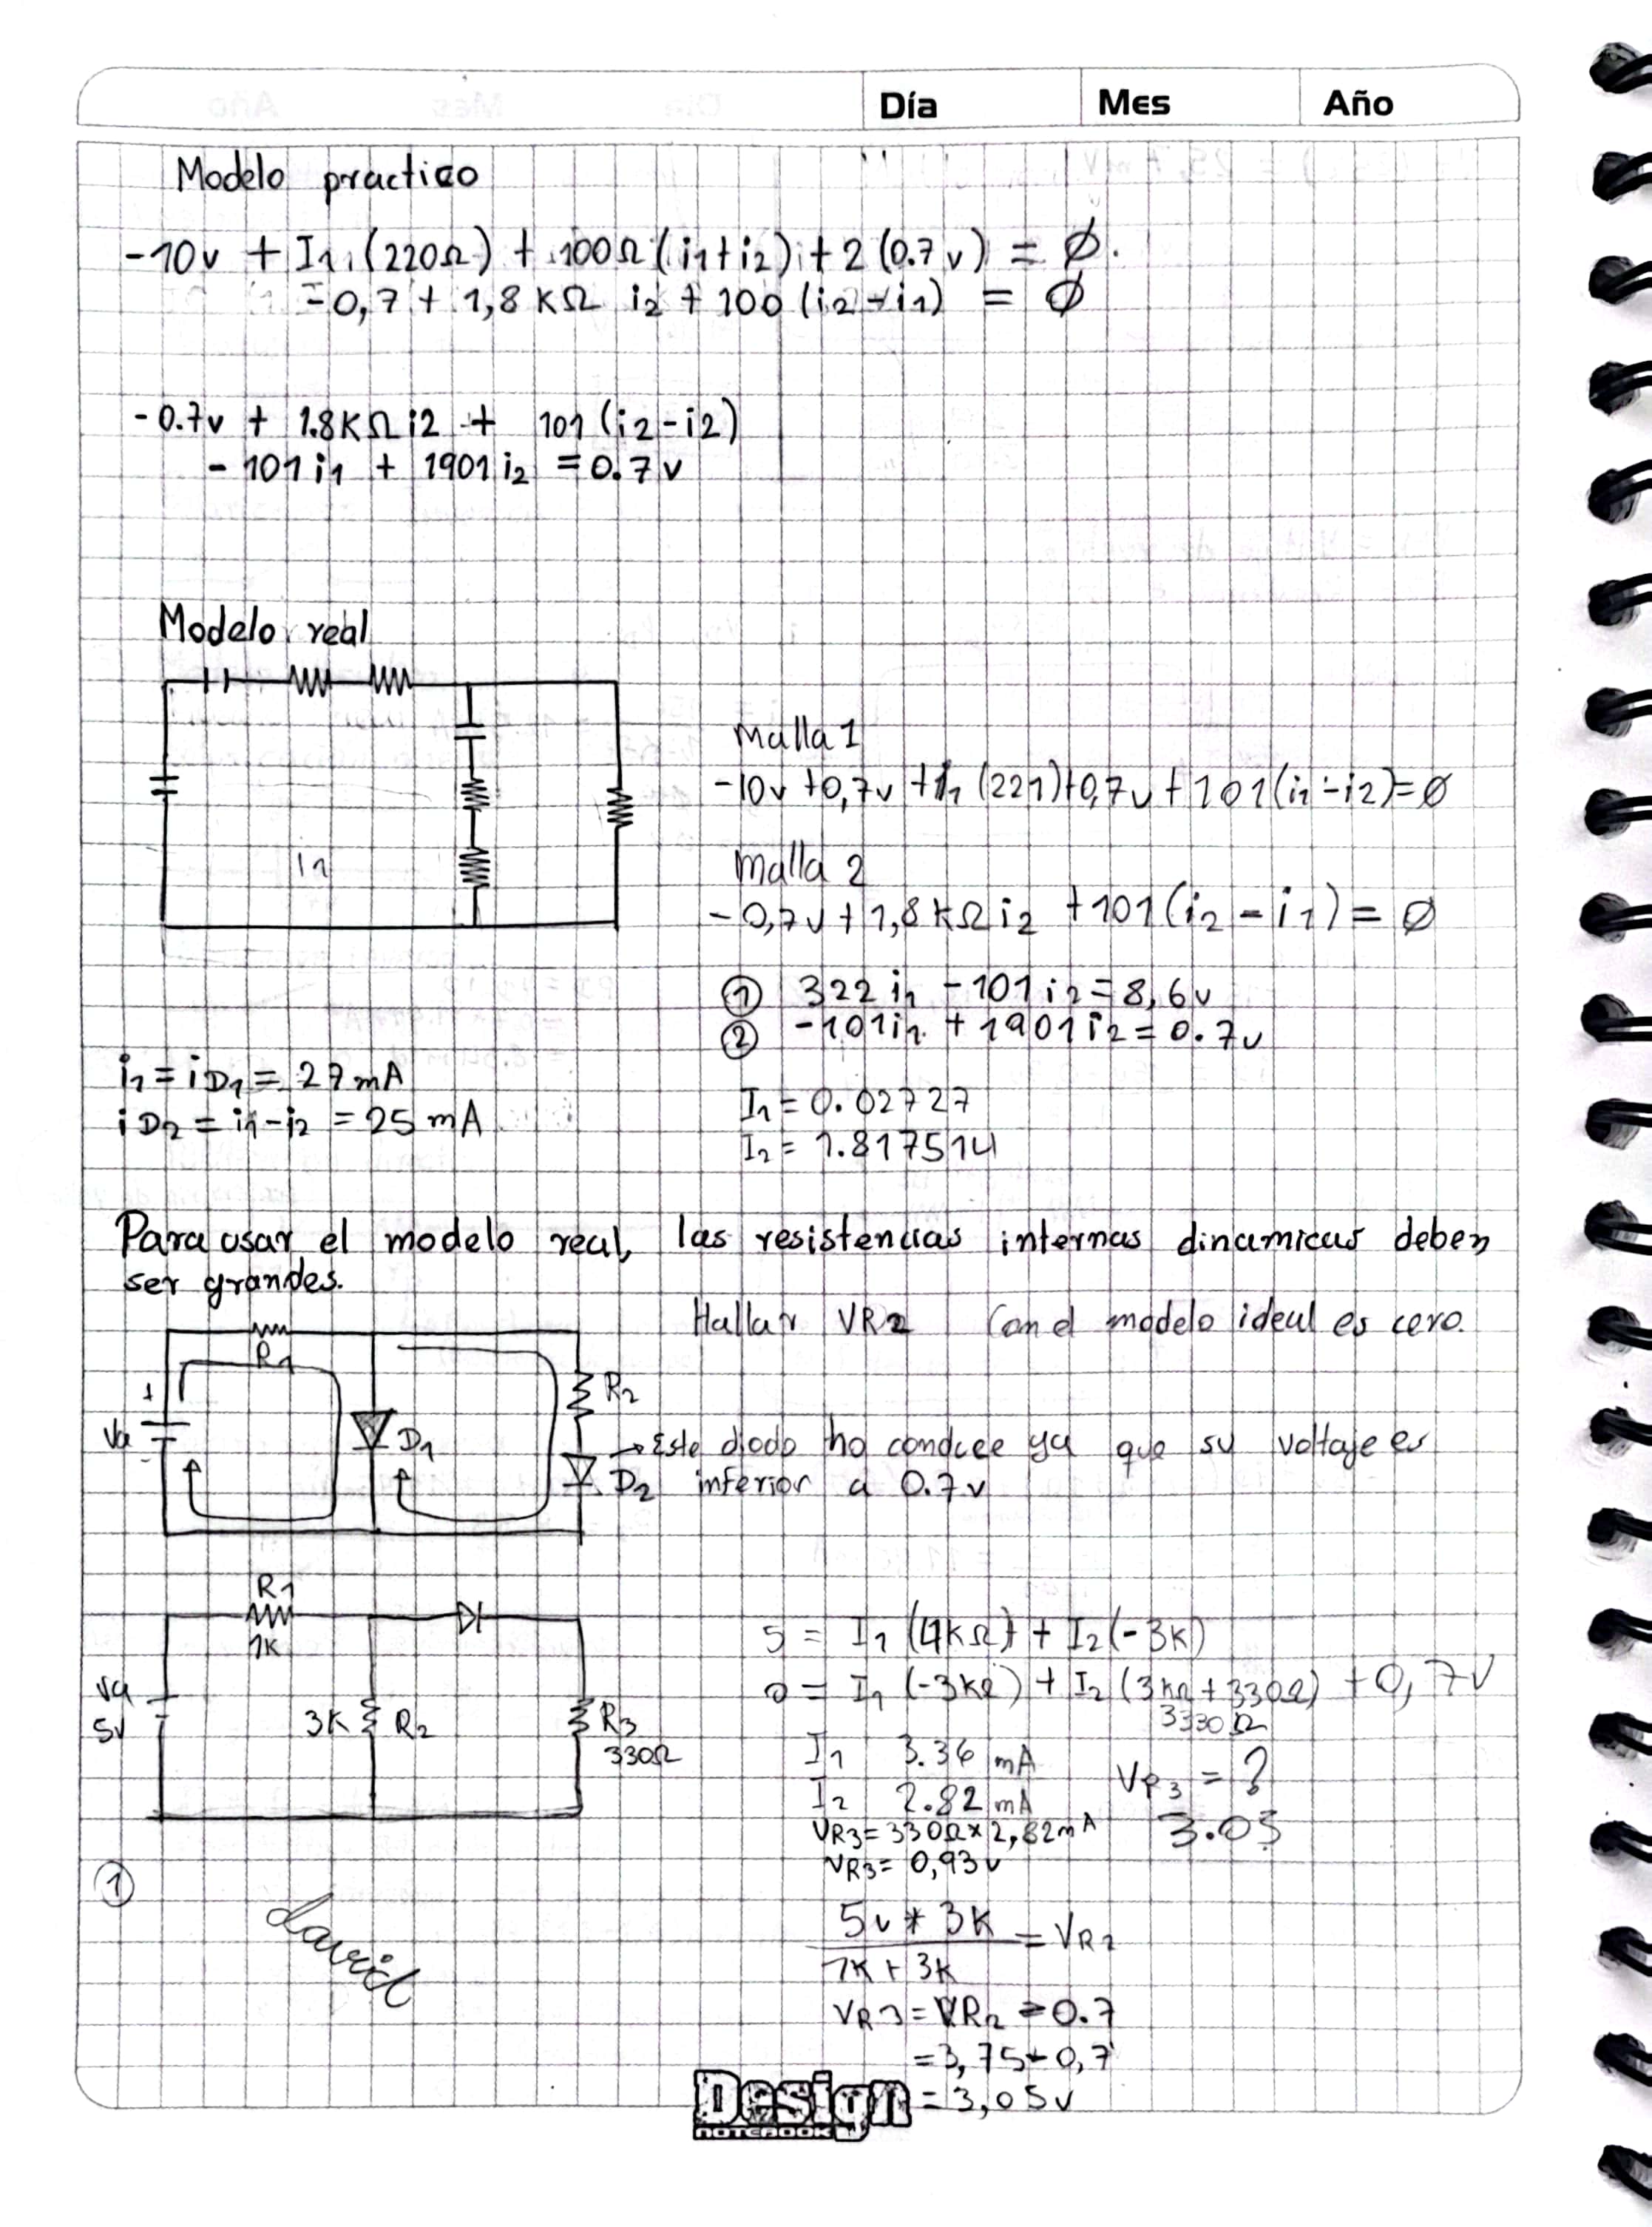 Día Mes Año
Modelo practico
-10v + I1 (220Ω) + 100Ω (i1+i2) + 2 (0.7v) = ∅.
-0,7 + 1,8KΩ i2 + 100 (i2-i1) = ∅
-0.7v + 1.8KΩ i2 + 101 (i2-i2)
-101 i1 + 1901 i2 = 0.7v
Modelo real
I1
Malla 1
-10v +0,7v + i1 (221)+0,7v + 101(i1-i2)=∅
Malla 2
-0,7v + 1,8kΩ i2 +101 (i2 - i1) = ∅
① 322 i1 - 101 i2 = 8,6v
② -101i1 + 1901 i2 = 0.7v
i1 = iD1 = 27mA
iD2 = i1-i2 = 25 mA
I1 = 0.02727
I2 = 1.817514
Para usar el modelo real, las resistencias internas dinamicas deben
ser grandes.
Hallar VR2 Con el modelo ideal es cero.
R1
R2
+
Va
-
D1
→ Este diodo no conduce ya que su voltaje es
D2 inferior a 0.7v
R1
1K
Va
5v
3K R2
R3
330Ω
5 = I1 (4KΩ) + I2 (-3K)
0 = I1 (-3KΩ) + I2 (3KΩ + 330Ω) + 0,7V
3330Ω
I1 3.36 mA
I2 2.82 mA
VR3 = ?
3.03
VR3 = 330Ω × 2,82mA
VR3 = 0,93v
5v * 3K = VR2
1K + 3K
VR3 = VR2 - 0.7
= 3,75 - 0,7
= 3,05v
①
David
Design
NOTEBOOK